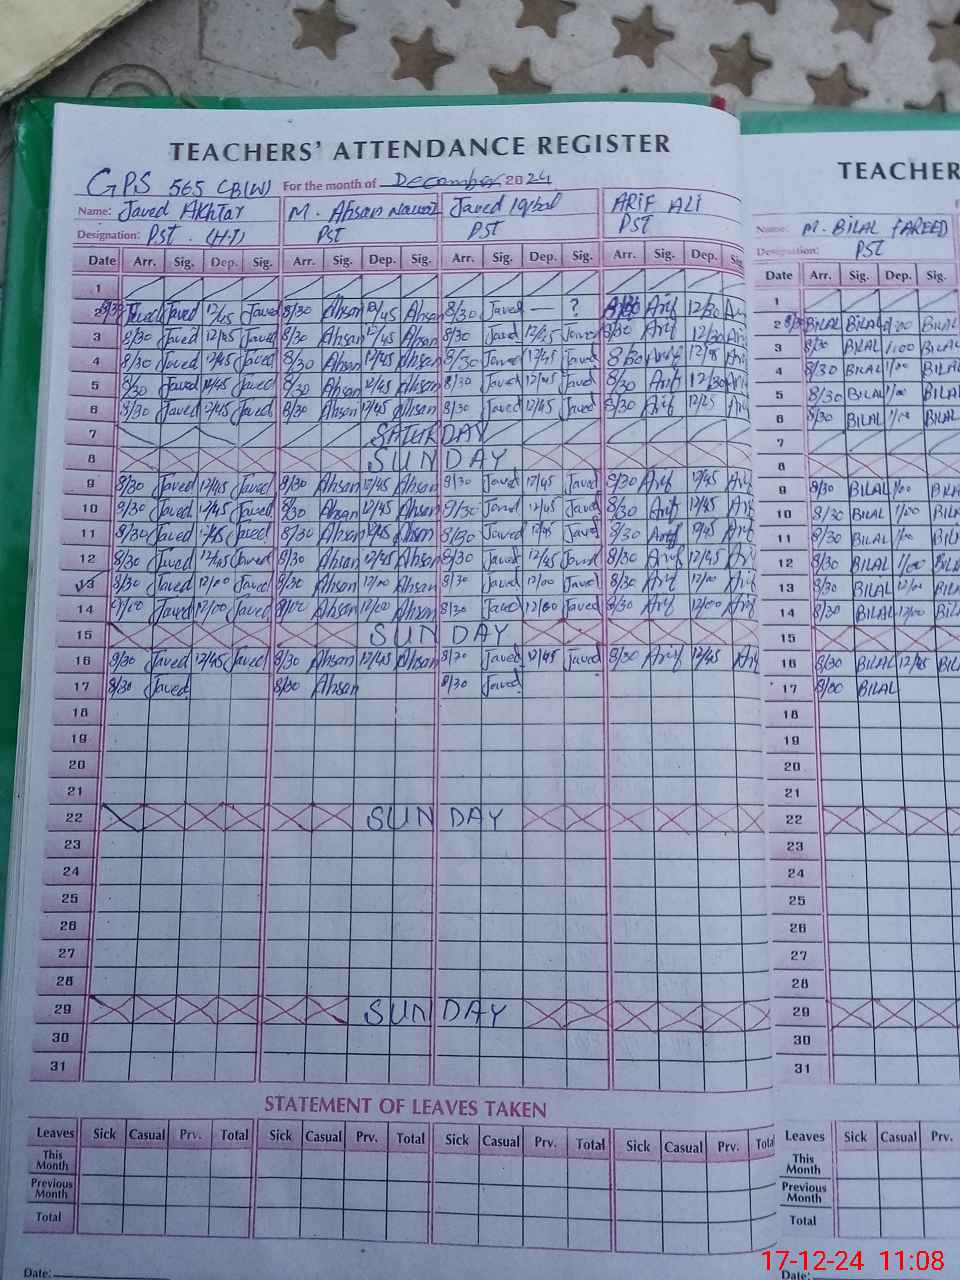 TEACHERS' ATTENDANCE REGISTER
GPS 565 GB(W) For the month of December 2024
Name: Javed Akhtar M. Ahsan Javed Iqbal ARIF ALI
Designation: PST. (HT) PST PST PST
Date Arr. Sig. Dep. Sig. Arr. Sig. Dep. Sig. Arr. Sig. Dep. Sig. Arr. Sig. Dep. Sig
1
2 Javed 12/45 Javed 8/30 Ahsan 12/45 Ahsan 8/30 Javed — ? Arif 12/30
3 8/30 Javed 12/45 Javed 8/30 Ahsan 12/45 Ahsan 8/30 Javed 12/45 Javed 8/30 Arif 12/30
4 8/30 Javed 12/45 Javed 8/30 Ahsan 12/45 Ahsan 8/30 Javed 12/45 Javed 8/30 Arif 12/45
5 8/30 Javed 12/45 Javed 8/30 Ahsan 12/45 Ahsan 8/30 Javed 12/45 Javed 8/30 Arif 12/30
6 8/30 Javed 12/45 Javed 8/30 Ahsan 12/45 Ahsan 8/30 Javed 12/45 Javed 8/30 Arif 12/45
7 SATURDAY
8 SUNDAY
9 8/30 Javed 12/45 Javed 8/30 Ahsan 12/45 Ahsan 8/30 Javed 12/45 Javed 8/30 Arif 12/45
10 8/30 Javed 12/45 Javed 8/30 Ahsan 12/45 Ahsan 8/30 Javed 12/45 Javed 8/30 Arif 12/45
11 8/30 Javed 12/45 Javed 8/30 Ahsan 12/45 Ahsan 8/30 Javed 12/45 Javed 8/30 Arif 12/45
12 8/30 Javed 12/45 Javed 8/30 Ahsan 12/45 Ahsan 8/30 Javed 12/45 Javed 8/30 Arif 12/45
13 8/30 Javed 12/00 Javed 8/30 Ahsan 12/00 Ahsan 8/30 Javed 12/00 Javed 8/30 Arif 12/00
14 Javed 12/00 Javed Ahsan 12/00 Ahsan 8/30 Javed 12/00 Javed 8/30 Arif 12/00
15 SUNDAY
16 8/30 Javed 12/45 Javed 8/30 Ahsan 12/45 Ahsan 8/30 Javed 12/45 Javed 8/30 Arif 12/45
17 8/30 Javed 8/30 Ahsan 8/30 Javed
18
19
20
21
22 SUNDAY
23
24
25
26
27
28
29 SUNDAY
30
31
STATEMENT OF LEAVES TAKEN
Leaves Sick Casual Prv. Total Sick Casual Prv. Total Sick Casual Prv. Total Sick Casual Prv. Total
This Month
Previous Month
Total
Date:
TEACHER
Name: M. BILAL FAREED
Designation: PST
Date Arr. Sig. Dep. Sig.
1
2 BILAL BILAL BILAL
3 8/30 BILAL 1/00 BILAL
4 8/30 BILAL 1/00 BILAL
5 8/30 BILAL 1/00 BILAL
6 8/30 BILAL 1/00 BILAL
7
8
9 8/30 BILAL 1/00
10 8/30 BILAL 1/00
11 8/30 BILAL 1/00
12 8/30 BILAL 1/00
13 8/30 BILAL 12/00
14 8/30 BILAL 12/00
15
16 8/30 BILAL 12/45
17 8/00 BILAL
18
19
20
21
22
23
24
25
26
27
28
29
30
31
Leaves Sick Casual Prv.
This Month
Previous Month
Total
Date:
17-12-24 11:08